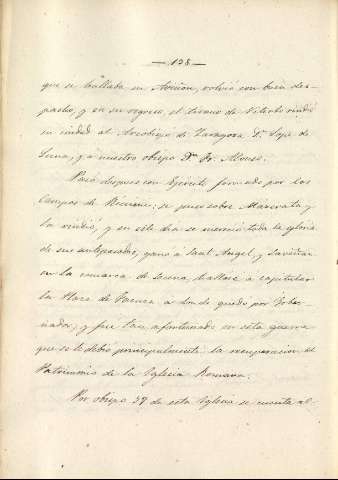 — 158 —
que se hallaba en Aviñon, volvió con buen des-
pacho, y en su regreso, el tirano de Viterbo rindió
su ciudad al Arzobispo de Zaragoza Dn. Lope de
Luna, y á nuestro obispo Dn. Fr. Alonso.
Pasó despues con Ejército formado por los
Campos de se puso sobre Macerata y
la rindió, y en este dia se mereció toda la gloria
de sus antepasados, ganó á Sant Angel, y
en la comarca de hallose á capitular
la Plaza de a donde quedó por Gober-
nador, y fue tan afortunado en esta guerra
que se le debió principalmente la recuperacion del
Patrimonio de la Iglesia Romana.
Por obispo 39 de esta Iglesia se cuenta al